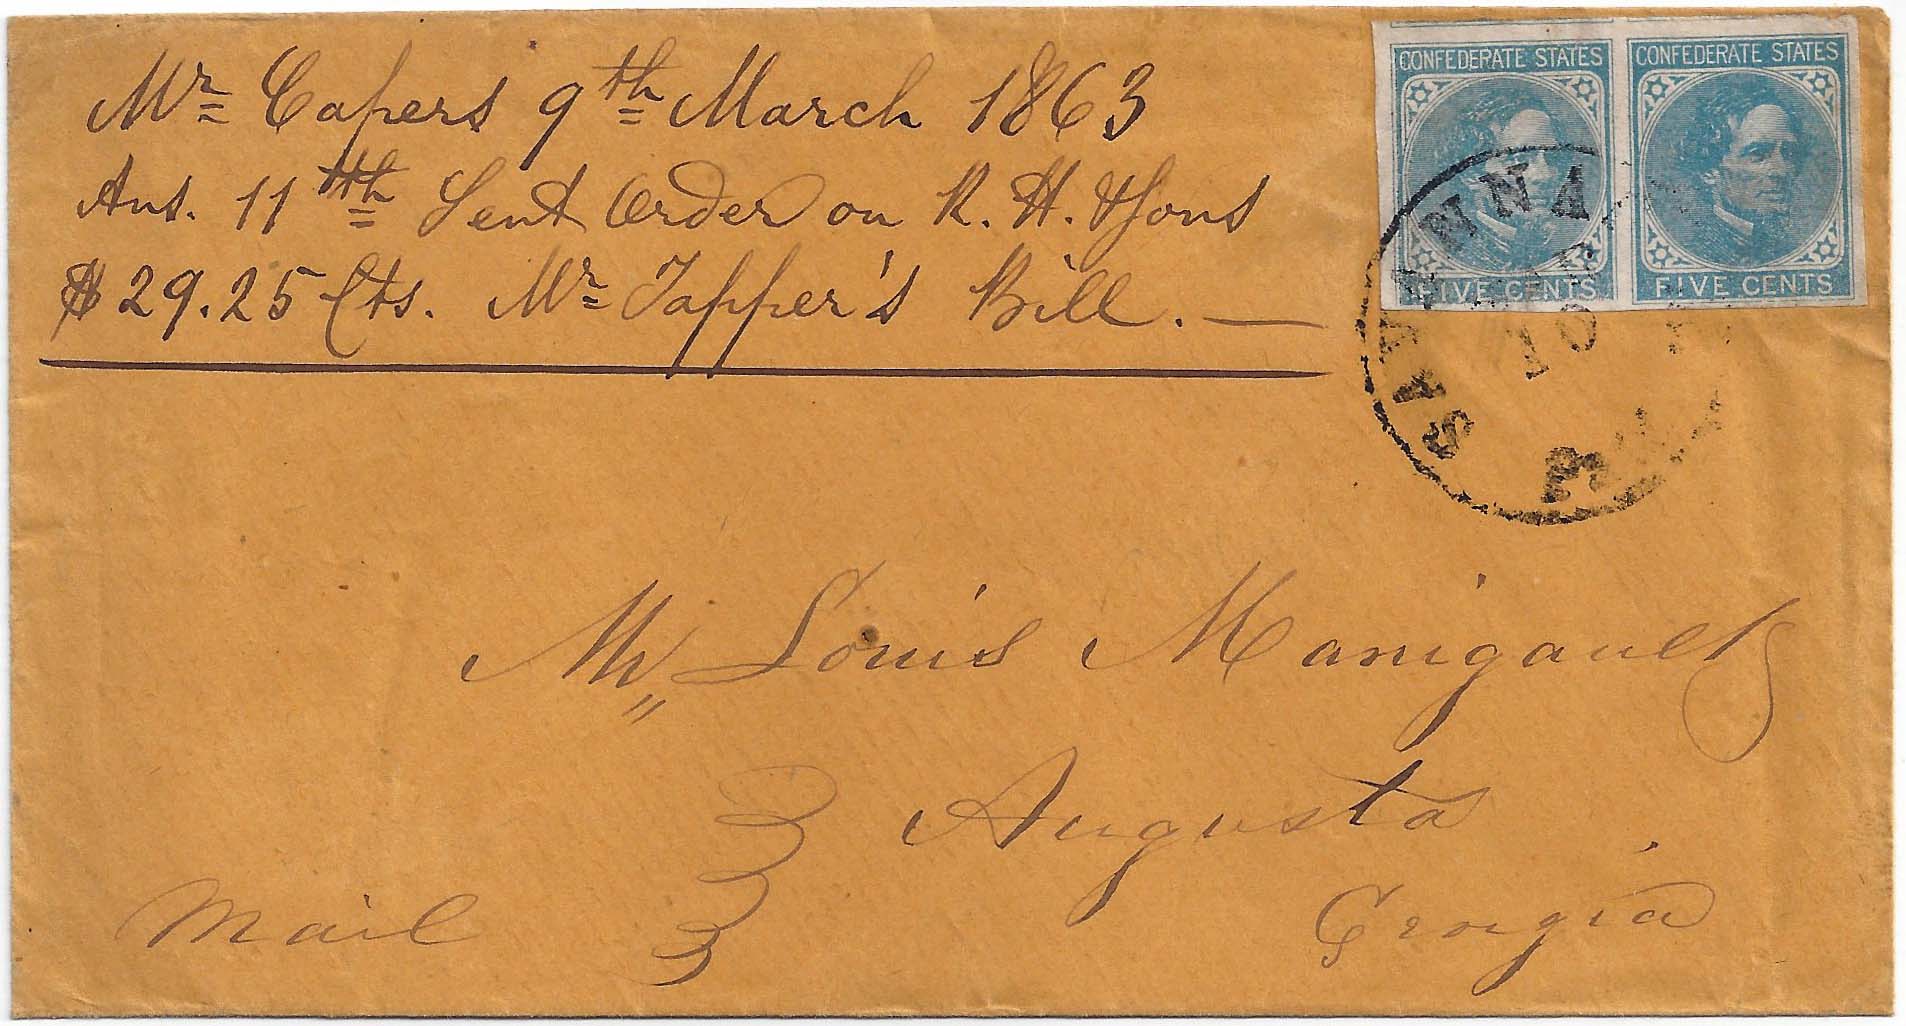 Mr Capers 9th March 1863
Ans. 11th Sent Order on R. H. & Sons
$29.25 Cts. Mr Tapper's Bill. —
CONFEDERATE STATES
FIVE CENTS
CONFEDERATE STATES
FIVE CENTS
SAVANNA
10
Mr Louis Manigault
Augusta
Georgia
Mail